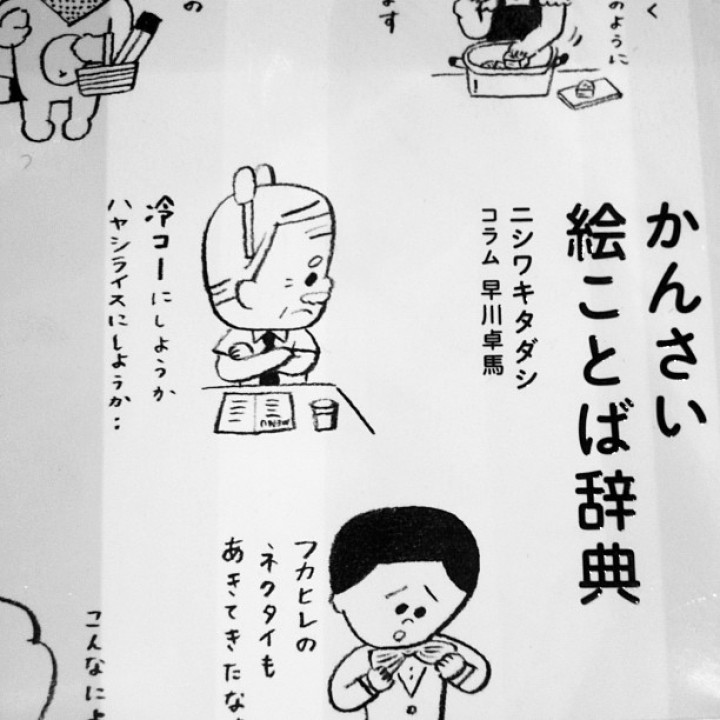 かんさい
絵ことば辞典
ニシワキタダシ
コラム 早川卓馬
く
のように
ます
の
冷コーにしようか
ハヤシライスにしようか‥
MENU
フカヒレの
ネクタイも
あきてきたな
こんなによ